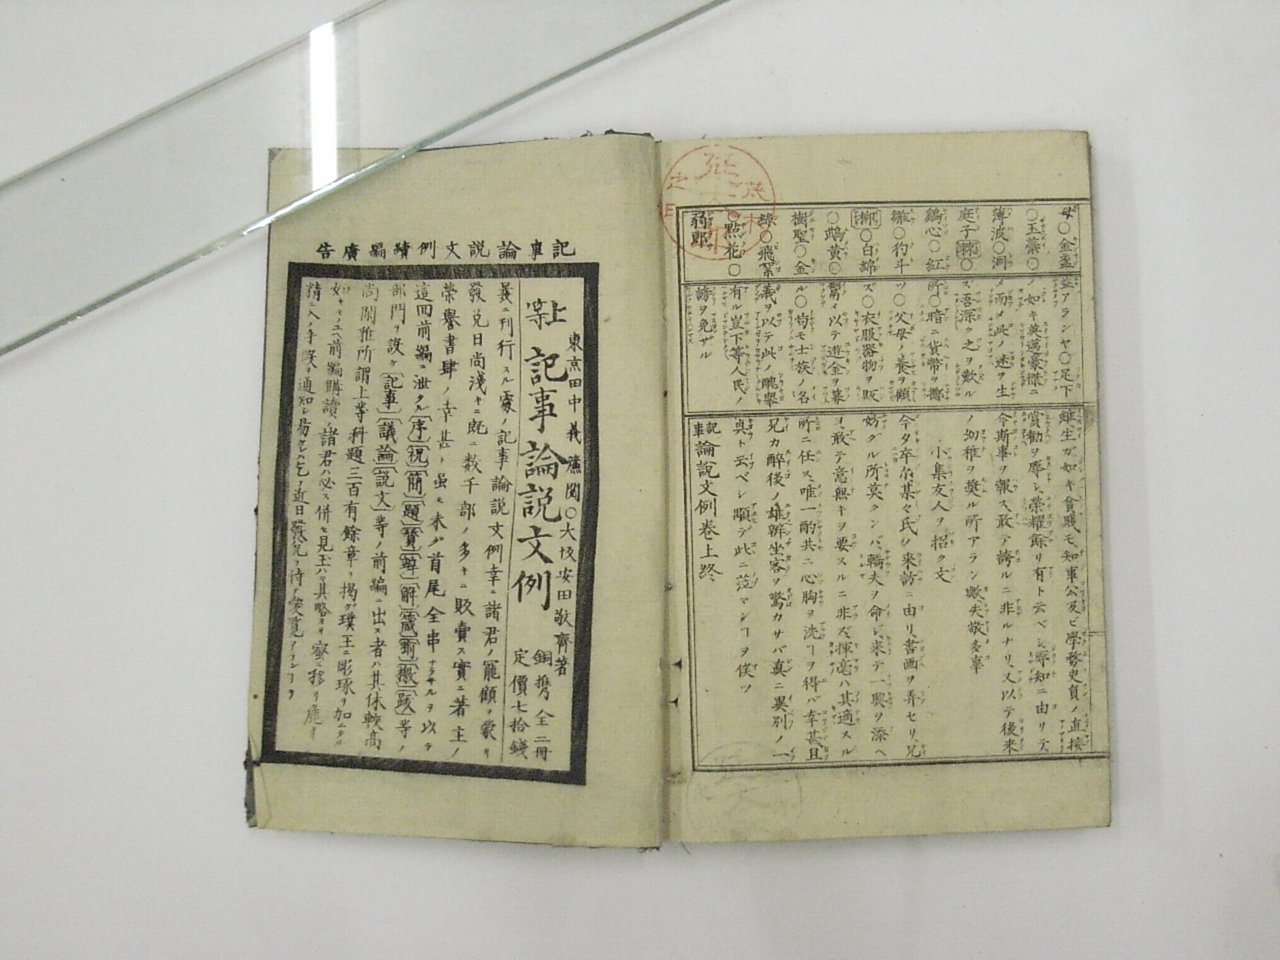 母○金盞
○玉蘂○
薄波○洞
庭子○
鷄心○紅
籬○杓斗
柳○白綿
○鴟黄○
樹聖○金
線○飛絮
○點花○
蒻郎
アランヤ○足下
ノ如キ英邁豪傑ニ
ノ而メ此ノ迷ヲ生
ズ吾深ク之ヲ歎ル
所○暗ニ貨幣ヲ擲
ツ○父母ノ養ヲ顧
ズ○衣服器物ヲ販
鬻メ以テ遊金ヲ募
ル○苟モ士族ノ名
義ヲ以テ此ノ醜擧
有ル豈下等人民ノ
謗ヲ免ザル
生ガ如キ貧賤モ知事公及ビ學務吏員ノ直接
賞勧ヲ辱シ榮耀餘リ有ト云ベシ辱知ニ由リテ
今斯事ヲ報ス敢テ誇ルニ非ルナリ又以テ後来
ノ幼稚ヲ奬ル所アラン歟失敬多辜
小集友人ヲ招ク文
今夕卒尓某々氏ノ来訪ニ由リ書画ヲ弄セリ兄
妨グル所莫クンバ轎夫ヲ命シ来テ一興ヲ添ヘ
ヨ敢テ意無キヲ要スルニ非ズ揮毫ハ其適スル
所ニ任ス唯一酌共ニ心胸ヲ洗ヿヲ得バ幸甚且
兄カ醉後ノ雄辨坐客ヲ驚カサバ真ニ異別ノ一
與ト云ベシ顒デ此ニ莅マンヿヲ俟ツ
記事論說文例卷上終
記事論說文例續編廣告
東京田中義廉閲○大坂安田敬齋著
上等記事論說文例 銅擕全二冊 定價七拾錢
義ニ刊行スル處ノ記事論說文例幸ニ諸君ノ寵顧ヲ蒙リ
發兌日尚淺キニ既ニ数千部ノ多キニ販賣ス實ニ著主ノ
榮譽書肆ノ幸甚ナリ虽モ未ダ首尾全串ナラサルヲ以テ
這回前編ニ泄タル〔序〕〔祝〕〔簡〕〔題〕〔賛〕〔辨〕〔解〕〔箴〕〔銘〕〔檄〕〔跋〕等ノ
部門ヲ設ケ〔記事〕〔議論〕〔說文〕等ノ前編ニ出ス者ハ其体較高
尚閑雅所謂上等科題三百有餘章ヲ掲グ璞玉ニ彫琢ヲ加
如キ前編購讀ノ諸君ハ必ス併セ見玉ハ其略
精通知シ易近日發兌ヲ待チ愛覧アランヿヲ